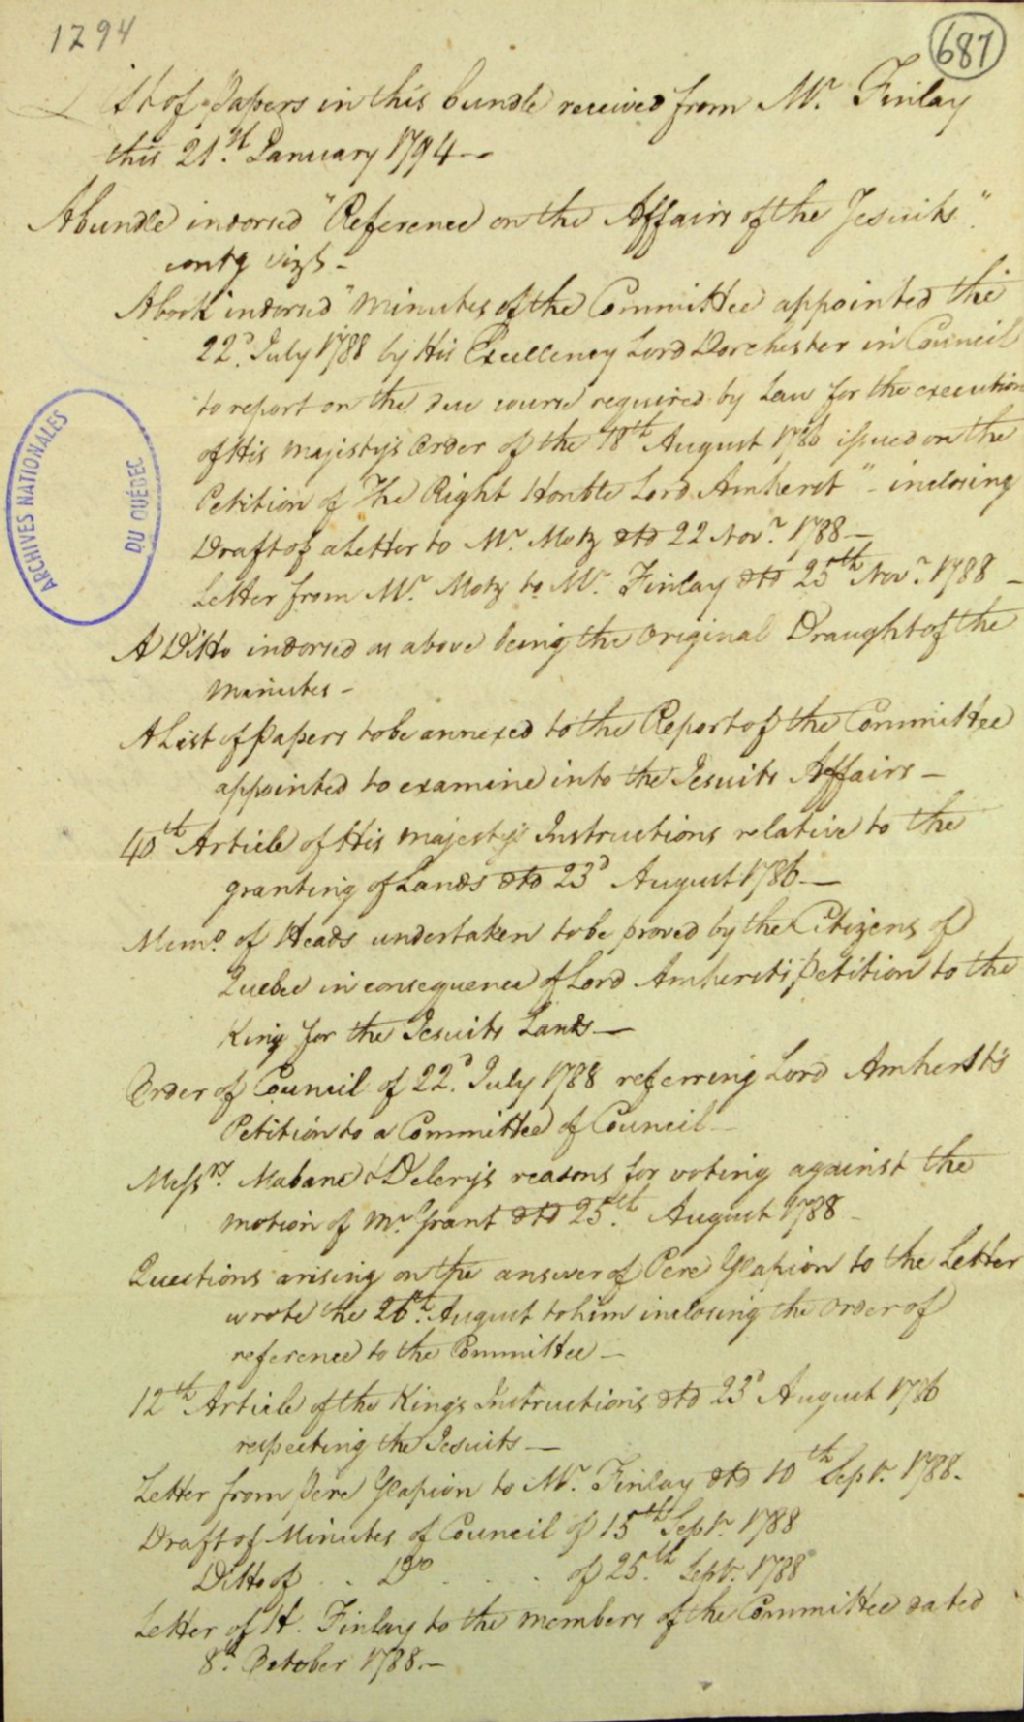 1794
687
List of Papers in this bundle received from Mr. Finlay
this 21st. January 1794--
A bundle indorsed "Reference on the Affairs of the Jesuits"
contg vizt-
A book indorsed "Minutes of the Committee appointed the
22d. July 1788 by His Excellency Lord Dorchester in Council
to report on the due course required by Law for the execution
of His Majesty's Order of the 18th August 1786 issued on the
Petition of The Right Honble Lord Amherst" - inclosing
Draft of a Letter to Mr. Motz dtd 22 Novr. 1788 -
Letter from Mr. Motz to Mr. Finlay dtd 25th Novr. 1788 -
A Ditto indorsed as above being the Original Draught of the
Minutes -
A List of Papers to be annexed to the Report of the Committee
appointed to examine into the Jesuits Affairs -
40th Article of His Majesty's Instructions relative to the
granting of Lands dtd 23d August 1786 -
Memo of Heads undertaken to be proved by the Citizens of
Quebec in consequence of Lord Amherst's Petition to the
King for the Jesuits Lands -
Order of Council of 22d. July 1788 referring Lord Amherst's
Petition to a Committee of Council -
Messrs. Mabane & Delery's reasons for voting against the
motion of Mr Grant dtd 25th. August 1788 -
Questions arising on the answer of Pere Glapion to the Letter
wrote the 26th. August to him inclosing the Order of
reference to the Committee -
12th Article of the King's Instructions dtd 23d August 1786
respecting the Jesuits -
Letter from Pere Glapion to Mr. Finlay dtd 10th Sepr. 1788.
Draft of Minutes of Council of 15th Sepr. 1788
Ditto of . . Do . . . of 25th. Sepr. 1788
Letter of H. Finlay to the members of the Committee dated
8th. October 1788.-
ARCHIVES NATIONALES
DU QUÉBEC